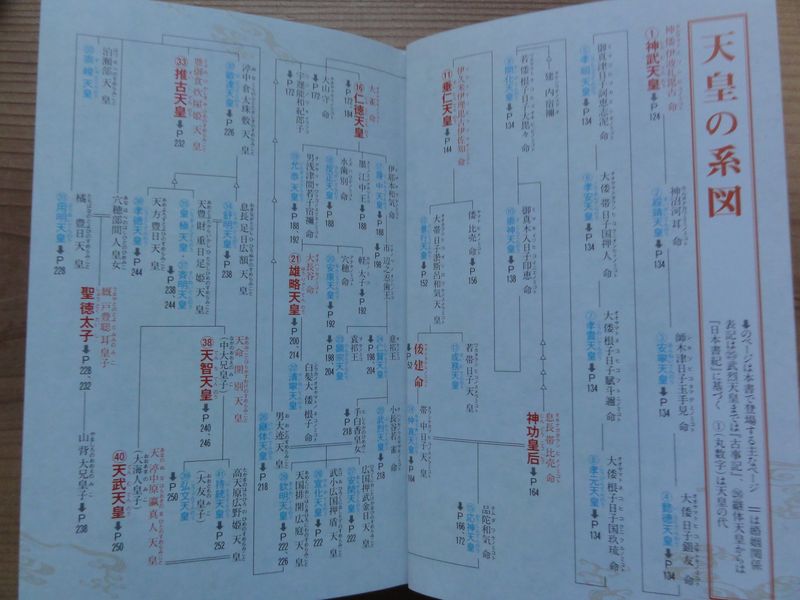 天皇の系図
⬇のページは本書で登場する主なページ ＝は婚姻関係
表記は㉕武烈天皇までは『古事記』、㉖継体天皇からは
『日本書紀』に基づく ①(丸数字)は天皇の代
神倭伊波礼毘古命
①神武天皇⬇P124
神沼河耳命
②綏靖天皇⬇P134
師木津日子玉手見命
③安寧天皇⬇P134
大倭日子鉏友命
④懿徳天皇⬇P134
御真津日子訶恵志泥命
⑤孝昭天皇⬇P134
大倭帯日子国押人命
⑥孝安天皇⬇P134
大倭根子日子賦斗邇命
⑦孝霊天皇⬇P134
大倭根子日子国玖琉命
⑧孝元天皇⬇P134
建内宿禰
若倭根子日子大毘々命
⑨開化天皇⬇P134
御真木入日子印恵命
⑩崇神天皇⬇P138
伊久米伊理毘古伊佐知命
⑪垂仁天皇⬇P144
倭比売命⬇P156
大帯日子淤斯呂和気天皇
⑫景行天皇⬇P152
若帯日子天皇
⑬成務天皇
倭建命
息長帯比売命
神功皇后⬇P164
帯中日子天皇
⑭仲哀天皇⬇P164
品陀和気命
⑮応神天皇⬇P166 172
大雀命
⑯仁徳天皇⬇P172 184
大山守命⬇P172
宇遅能和紀郎子⬇P172
伊邪本和気命
⑰履中天皇⬇P188
墨江中王⬇P188
水歯別命
⑱反正天皇⬇P188
男浅津間若子宿禰命
⑲允恭天皇⬇P188 192
市辺之忍歯王⬇P198
軽太子⬇P192
穴穂命
⑳安康天皇⬇P198
大長谷命
㉑雄略天皇⬇P200 214
意祁王
㉔仁賢天皇⬇P198 204
袁祁王
㉓顕宗天皇⬇P198 204
白髪大倭根子命
㉒清寧天皇⬇P214
小長谷若雀命
㉕武烈天皇⬇P218
手白香皇女
男大迹天皇
㉖継体天皇⬇P218
広国押武金日天皇
㉗安閑天皇⬇P222
武小広国押盾天皇
㉘宣化天皇⬇P222
天国排開広庭天皇
㉙欽明天皇⬇P222 226
渟中倉太珠敷天皇
㉚敏達天皇⬇P226
豊御食炊屋姫天皇
㉝推古天皇⬇P232
泊瀬部天皇
㉜崇峻天皇
橘豊日天皇
㉛用明天皇⬇P228
穴穂部間人皇女
厩戸豊聡耳皇子
聖徳太子⬇P228 232
山背大兄王⬇P238
息長足日広額天皇
㉞舒明天皇⬇P238
天豊財重日足姫天皇
㉟皇極天皇・㊲斉明天皇⬇P238 244
天万豊日天皇
㊱孝徳天皇⬇P244
天命開別天皇
(中大兄皇子)
㊳天智天皇⬇P240 246
天渟中原瀛真人天皇
(大海人皇子)
㊵天武天皇⬇P250
高天原広野姫天皇
㊶持統天皇⬇P252
(大友皇子)
㊴弘文天皇⬇P250